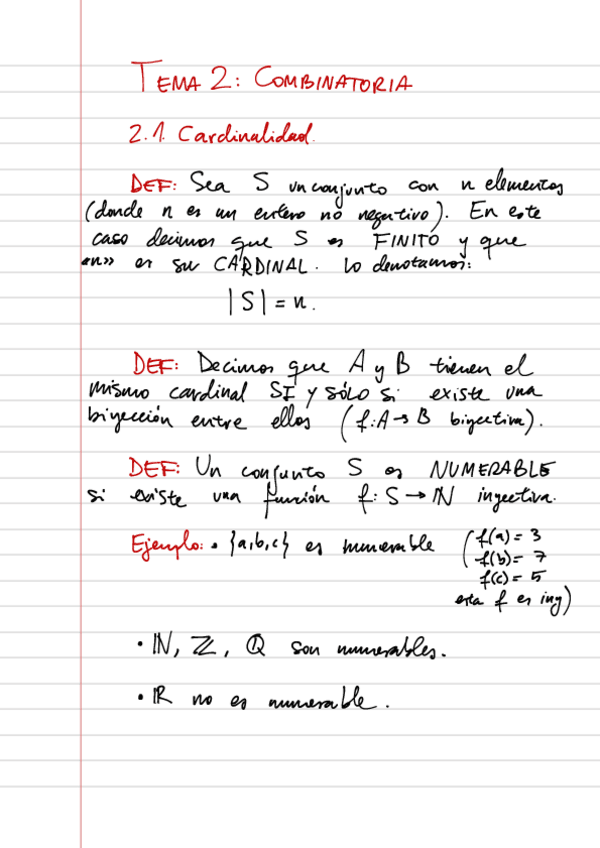 TEMA 2: COMBINATORIA
2.1. Cardinalidad.
DEF: Sea S un conjunto con n elementos
(donde n es un entero no negativo). En este
caso decimos que S es FINITO y que
«n» es su CARDINAL. Lo denotamos:
|S| = n.
DEF: Decimos que A y B tienen el
mismo cardinal SI y sólo si existe una
biyección entre ellos (f: A → B biyectiva).
DEF: Un conjunto S es NUMERABLE
si existe una función f: S → ℕ inyectiva.
Ejemplo: • {a,b,c} es numerable (f(a) = 3
f(b) = 7
f(c) = 5
esta f es iny)
• ℕ, ℤ, ℚ son numerables.
• ℝ no es numerable.